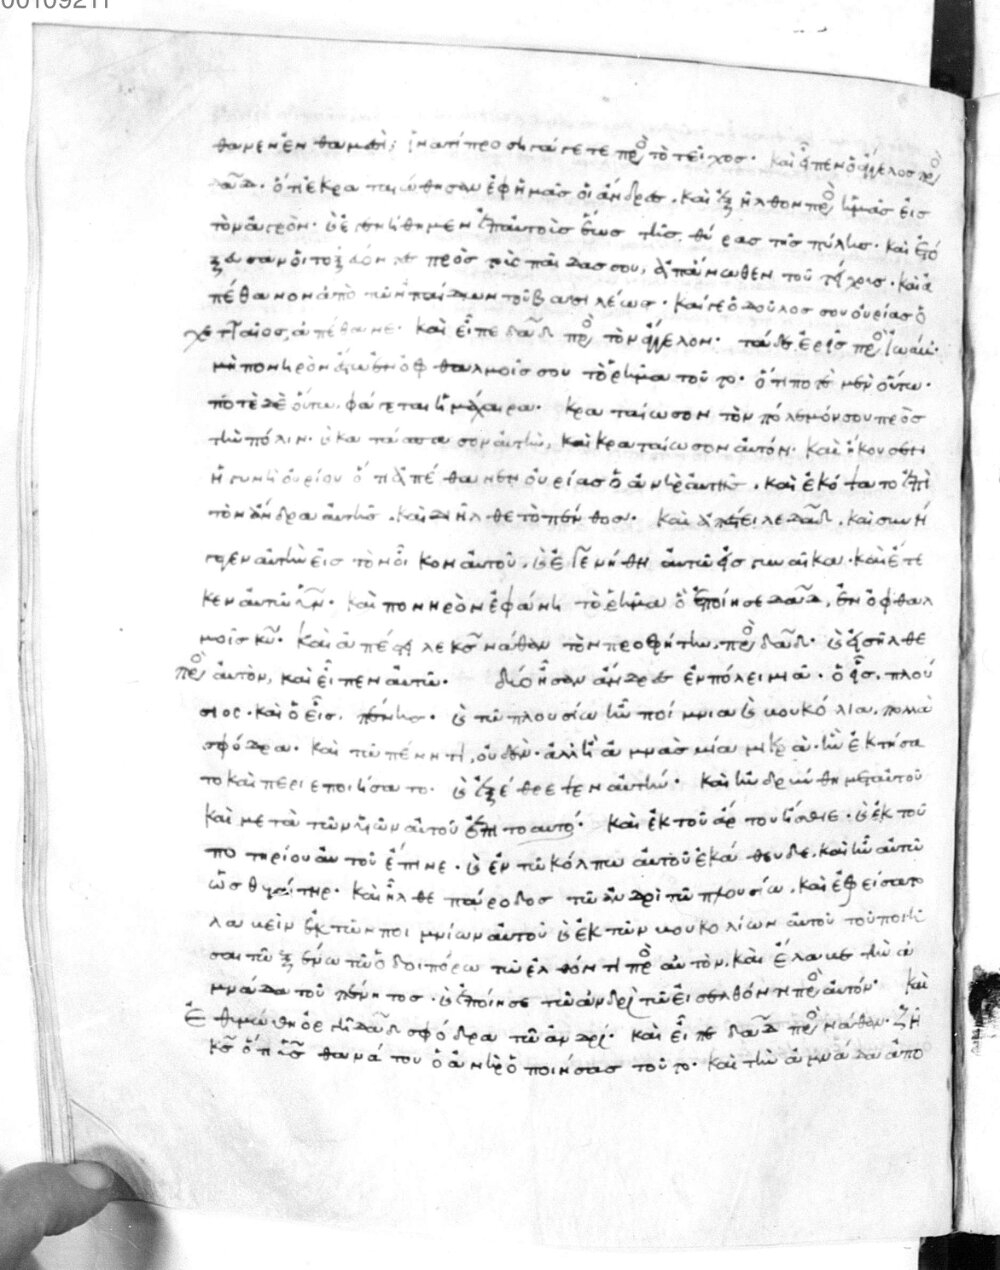 00109211
θανεν ἐν θαμασὶ; ἱνατί προσηγάγετε πρὸ τὸ τεῖχοσ· καὶ εἶπεν ὁ ἄγγελοσ πρὸ
δαδ· ὅτι ἐκραταιώθησαν ἐφημᾶσ οἱ ἄνδρεσ, καὶ ἐξῆλθον πρὸ ἡμᾶσ εἰσ
τὸν ἀγρὸν· καὶ ἐγενήθημεν ἐπαυτοὺσ ἕωσ τῆσ θύρασ τῆσ πύλησ· καὶ ἐτό
ξευσαν οἱ τοξεύοντεσ πρὸσ τοὺσ παῖδασ σου, ἀπάνωθεν τοῦ τείχουσ· καὶ ἀ
πέθανον ἀπὸ τῶν παίδων τοῦ βασιλέωσ· καί γε ὁ δοῦλοσ σου οὐρίασ ὁ
χετταῖοσ, ἀπέθανε· καὶ εἶπε δαδ πρὸ τὸν ἄγγελον· τάδε ἐρεῖσ πρὸ ἰωάβ·
μὴ πονηρὸν ἔστω ἐν ὀφθαλμοῖσ σου τὸ ῥῆμα τοῦτο· ὅτι ποτὲ μὲν οὕτω·
ποτὲ δὲ οὕτω, φάγεται ἡ μάχαιρα· κραταίωσον τὸν πόλεμόν σου πρὸσ
τὴν πόλιν· καὶ κατάσπασον αὐτὴν, καὶ κραταίωσον αὐτόν· καὶ ἤκουσεν
ἡ γυνὴ οὐρίου ὅτι ἀπέθανεν οὐρίασ ὁ ἀνὴρ αὐτῆσ, καὶ ἐκόψατο ἐπὶ
τὸν ἄνδρα αὐτῆσ, καὶ διῆλθε τὸ πένθοσ· καὶ ἀπέστειλε δαδ, καὶ συνή
γαγεν αὐτὴν εἰσ τὸν οἶκον αὐτοῦ, καὶ ἐγενήθη αὐτῶ εἰσ γυναῖκα· καὶ ἔτε
κεν αὐτῶ υἱν· καὶ πονηρὸν ἐφάνη τὸ ῥῆμα ὃ ἐποίησε δαδ, ἐν ὀφθαλ
μοῖσ κυ· καὶ ἀπέστειλε κσ νάθαν τὸν προφήτην, πρὸ δαδ· καὶ εἰσῆλθε
πρὸ αὐτὸν, καὶ εἶπεν αὐτῶ· δύο ἦσαν ἄνδρεσ ἐν πόλει μιᾶ· ὁ εἷσ, πλού
σιοσ· καὶ ὁ εἷσ, πένησ· καὶ τῶ πλουσίω ἦν ποίμνια καὶ βουκόλια, πολλὰ
σφόδρα· καὶ τῶ πένητι, οὐδὲν· ἀλλ᾽ ἢ ἀμνὰσ μία μικρὰ· ἣν ἐκτήσα
το καὶ περιεποιήσατο· καὶ ἐξέθρεψεν αὐτήν· καὶ ἡδρύνθη μεταυτοῦ
καὶ μετὰ τῶν υἱῶν αὐτοῦ ἐπιτοαυτό· καὶ ἐκ τοῦ ἄρτου ἤσθιε· καὶ ἐκ τοῦ
ποτηρίου αὐτοῦ ἔπινε· καὶ ἐν τῶ κόλπω αὐτοῦ ἐκάθευδε, καὶ ἦν αὐτῶ
ὡσ θυγάτηρ· καὶ ἦλθε πάροδοσ τῶ ἀνδρὶ τῶ πλουσίω, καὶ ἐφείσατο
λαβεῖν ἐκ τῶν ποιμνίων αὐτοῦ καὶ ἐκ τῶν βουκολίων αὐτοῦ τοῦ ποιῆ
σαι τῶ ξένω τῶ ὁδοιπόρω τῶ ἐλθόντι πρὸ αὐτὸν, καὶ ἔλαβε τὴν ἀ
μνάδα τοῦ πένητοσ· καὶ ἐποίησε τῶ ἀνδρὶ τῶ εἰσελθόντι πρὸ αὐτόν· καὶ
ἐθυμώθη ὀργῆ δαδ σφόδρα τῶ ἀνδρί· καὶ εἶπε δαδ πρὸ νάθαν· ζῆ
κσ ὅτι υἱσ θανάτου ὁ ἀνὴρ ὁ ποιήσασ τοῦτο· καὶ τὴν ἀμνάδα ἀπο